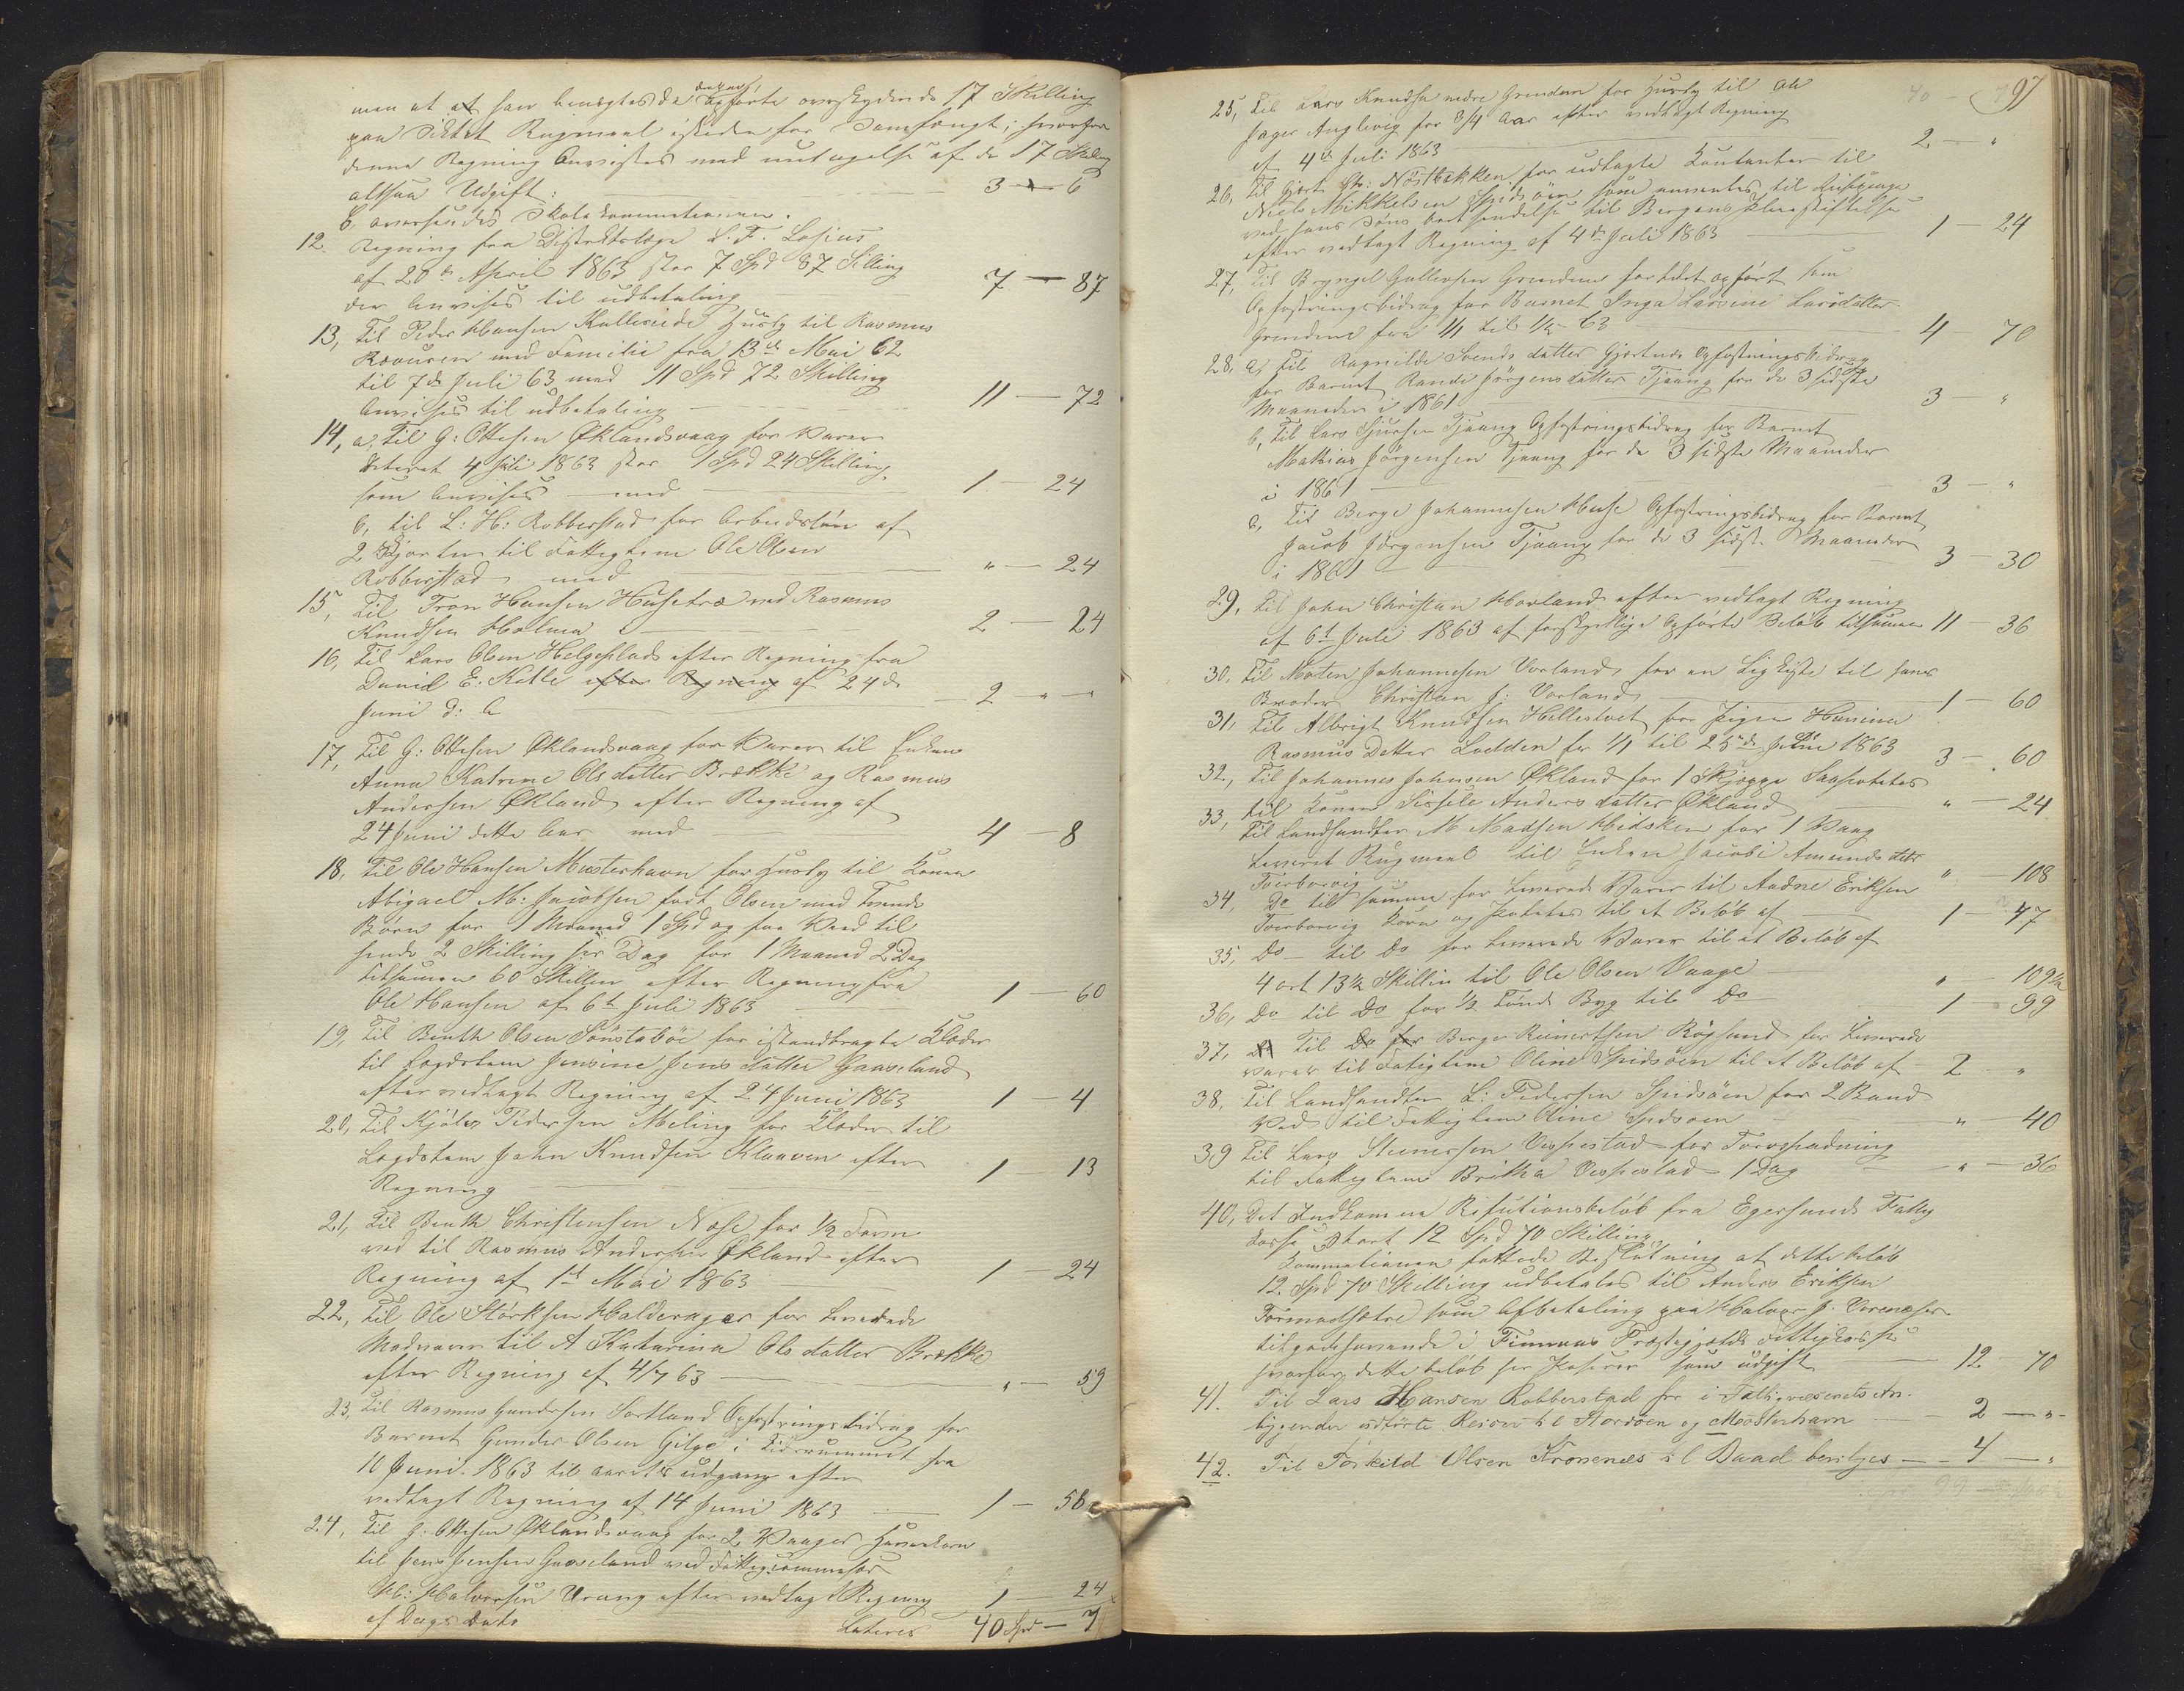 men at et han benegtes da opførte overskydende 17 Skilling
paa Rugmeel istedenfor ; hvorfor
denne Regning Anvistes med undtagelse af de 17 Skilling
altsaa Udgift: 3 — 6
b, oversendes Skolekommisionen.
12. Regning fra Distriktslæge L. F. Losius
af 20de April 1863 stor 7 Spd 87 Skilling
der Anvises til udbetaling 7 — 87
13, Til Peder Hansen Kalleveide Husly til Rasmus
med Familie fra 13de Mai 62
til 7de Juli 63 med 11 Spd 72 Skilling
Anvises til udbetaling 11 — 72
14, a, Til G: Ottesen Øklandsvaag for Varer
4 Juli 1863 stor 1 Spd 24 Skilling
som Anvises med 1 — 24
b, til L: H: Robberstad for Arbeidsløn af
2 Skjorter til Fattiglem Ole Olsen
Robberstad med " — 24
15, Til Tron Hansen Husetræ ved Rasmus
Knudsen Holmen 2 — 24
16, Til Lars Olsen Helgeplads efter Regning fra
Daniel E: Katle efter Regning af 24de
Juni d: A 2 — "
17, Til G: Ottesen Øklandsvaag for Varer til Enken
Anna Katrine Olsdatter Brække og Rasmus
Andersen Økland efter Regning af
24 Juni dette Aar med 4 — 8
18, Til Ole Hansen Mosterhavn for Husly til Konen
Abigael M: Jacobsen født Olsen med Tvende
Børn for 1 Maaned 1 Spd og for Ved til
hende 2 Skilling per Dag for 1 Maaned 2 Dag
tilsamen 60 Skilling efter Regning fra
Ole Hansen af 6te Juli 1863 1 — 60
19, Til Benth Olsen Sønstabøe for istandbragte Klæder
til Lægdslem Jensine Jensdatter Gaaseland
efter vedlagt Regning af 24 Juni 1863 1 — 4
20, Til Kjøler Pedersen Meling for Klæder til
Lægdslem John Knudsen Klaaven efter
Regning 1 — 13
21, Til Benth Christensen Nese for 1/2 Favn
ved til Rasmus Andersen Økland efter
Regning af 1st Mai 1863 1 — 24
22, Til Ole Størksen Halderager for Leverede
Madvarer til A Katarina Olsdatter Brække
efter Regning af 4/7 63 " — 59
23, Til Rasmus Gundersen Sortland Opfostringsbidrag for
Barnet Gunder Olsen Gilge i Tidsrummet fra
10 Juni 1863 til aarets udgang efter
vedlagt Regning af 14 Juni 1863 1 — 58
24, Til G: Ottesen Øklandsvaag for 2 Vaager Havrekorn
til Jens Jensen Gaaseland ved Fattigkommissær
M: Halvorsen Urang efter vedlagt Regning 1 24
af Dags Dato Lateres 40 Spd — 7
40 — 7 97
25, Til Lars Knudsen nedre Grindem for Husly til Ole
Jæger Anglevig for 3/4 Aar efter vedlagt Regning
af 4de Juli 1863 2 — "
26, Til Gjert Chr: Nøstbakken for udlagte Contanter til
Niels Mikkelsen Spidsøen som anvendtes til
ved hans Søns bortsendelse til Bergens Pleiestiftelse
efter vedlagt Regning af 4de Juli 1863 1 — 24
27, Til Bryngel Gullersen Grindem forhdet opført som
Opfostringsbidrag for Barnet Inga Larsine Larsdatter
Grindem fra 1/1 til 1/4 63 4 — 70
28, a, Til Ragnilde Svendsdatter Gjertnæs Opfostringsbidrag
for Barnet Randi Jørgensdatter Tjaang for de 3 sidste
Maaneder i 1861 3 — "
b, Til Lars Sjursen Tjaang Opfostringsbidrag for Barnet
Mathias Jørgensen Tjaang for de 3 sidste Maaneder
i 1861 3 — "
c, Til Berge Johannesen Huse Opfostringsbidrag for Barnet
Jacob Jørgensen Tjaang for de 3 sidste Maaneder
i 1861 3 — 30
29, Til John Christian Hovland efter vedlagt Regning
af 6te Juli 1863 af forskjellige Opførte Beløb tilsamen 11 — 36
30, Til Morten Johannesen Vorland, for en Ligkiste til hans
Broder Christian J: Vorland 1 — 60
31, Til Albrigt Knudsen Hellestvet for Pigen Hanna
Rasmus Datter Lodden for 1/1 til 25de Juni 1863 3 — 60
32, Til Johannes Johnsen Økland for 1 Skjeppe Sæpotetes
til Konen Sissele Andersdatter Økland " — 24
33, Til Landhandler M Madsen Hidsken for 1 Vaag
Leveret Rugmeel til Enken Jacobi Amundsdtr
Tverborvig " 108
34, Do til samme for Leverede Varer til Aadne Eriksen
Tverborvig Korn og Potetes til et Beløb af 1 — 47
35, Do — til Do for Leverede Varer til et Beløb af
4 ort 13 1/2 Skillin til Ole Olsen Vaage " — 109 1/2
36, Do til Do for 1/2 Tønde Byg til Do 1 — 99
37, Do Til Do for Berge Reinertsen Røgsund for Leverede
varer til Fattiglem Oline Spidsøen til et Beløb af 2 "
38, Til Landhandler L: Pedersen Spidsøen for 2 Baand
Ved til Fattiglem Oline Spidsøen " 40
39 Til Lars Steinersen Vespestad for Torvspadning
til Fattiglem Britha Vespestad 1 Dag " — 36
40, Det Indkomne Refutionsbeløb fra Egersunds Fattig
kasse Stort 12 Spd 70 Skilling
Kommissionen fattede Beslutning at dette Beløb
12 Spd 70 Skilling udbetales til Anders Eriksen
Tormodsætre som Afbetaling paa Halvor J: Vorenæses
tilgodehavende i Finnaas Præstegjelds Fattigkasse
hvorfor dette beløb her Posterer som udgift 12 — 70
41. Til Lars Hansen Robberstad for i Fattigvæsenets An-
liggender udførte Reiser til Stordøen og Mosterhavn 2 — "
42. Til Torkild Olsen Kronenæs til Baad benlyes 4 — "